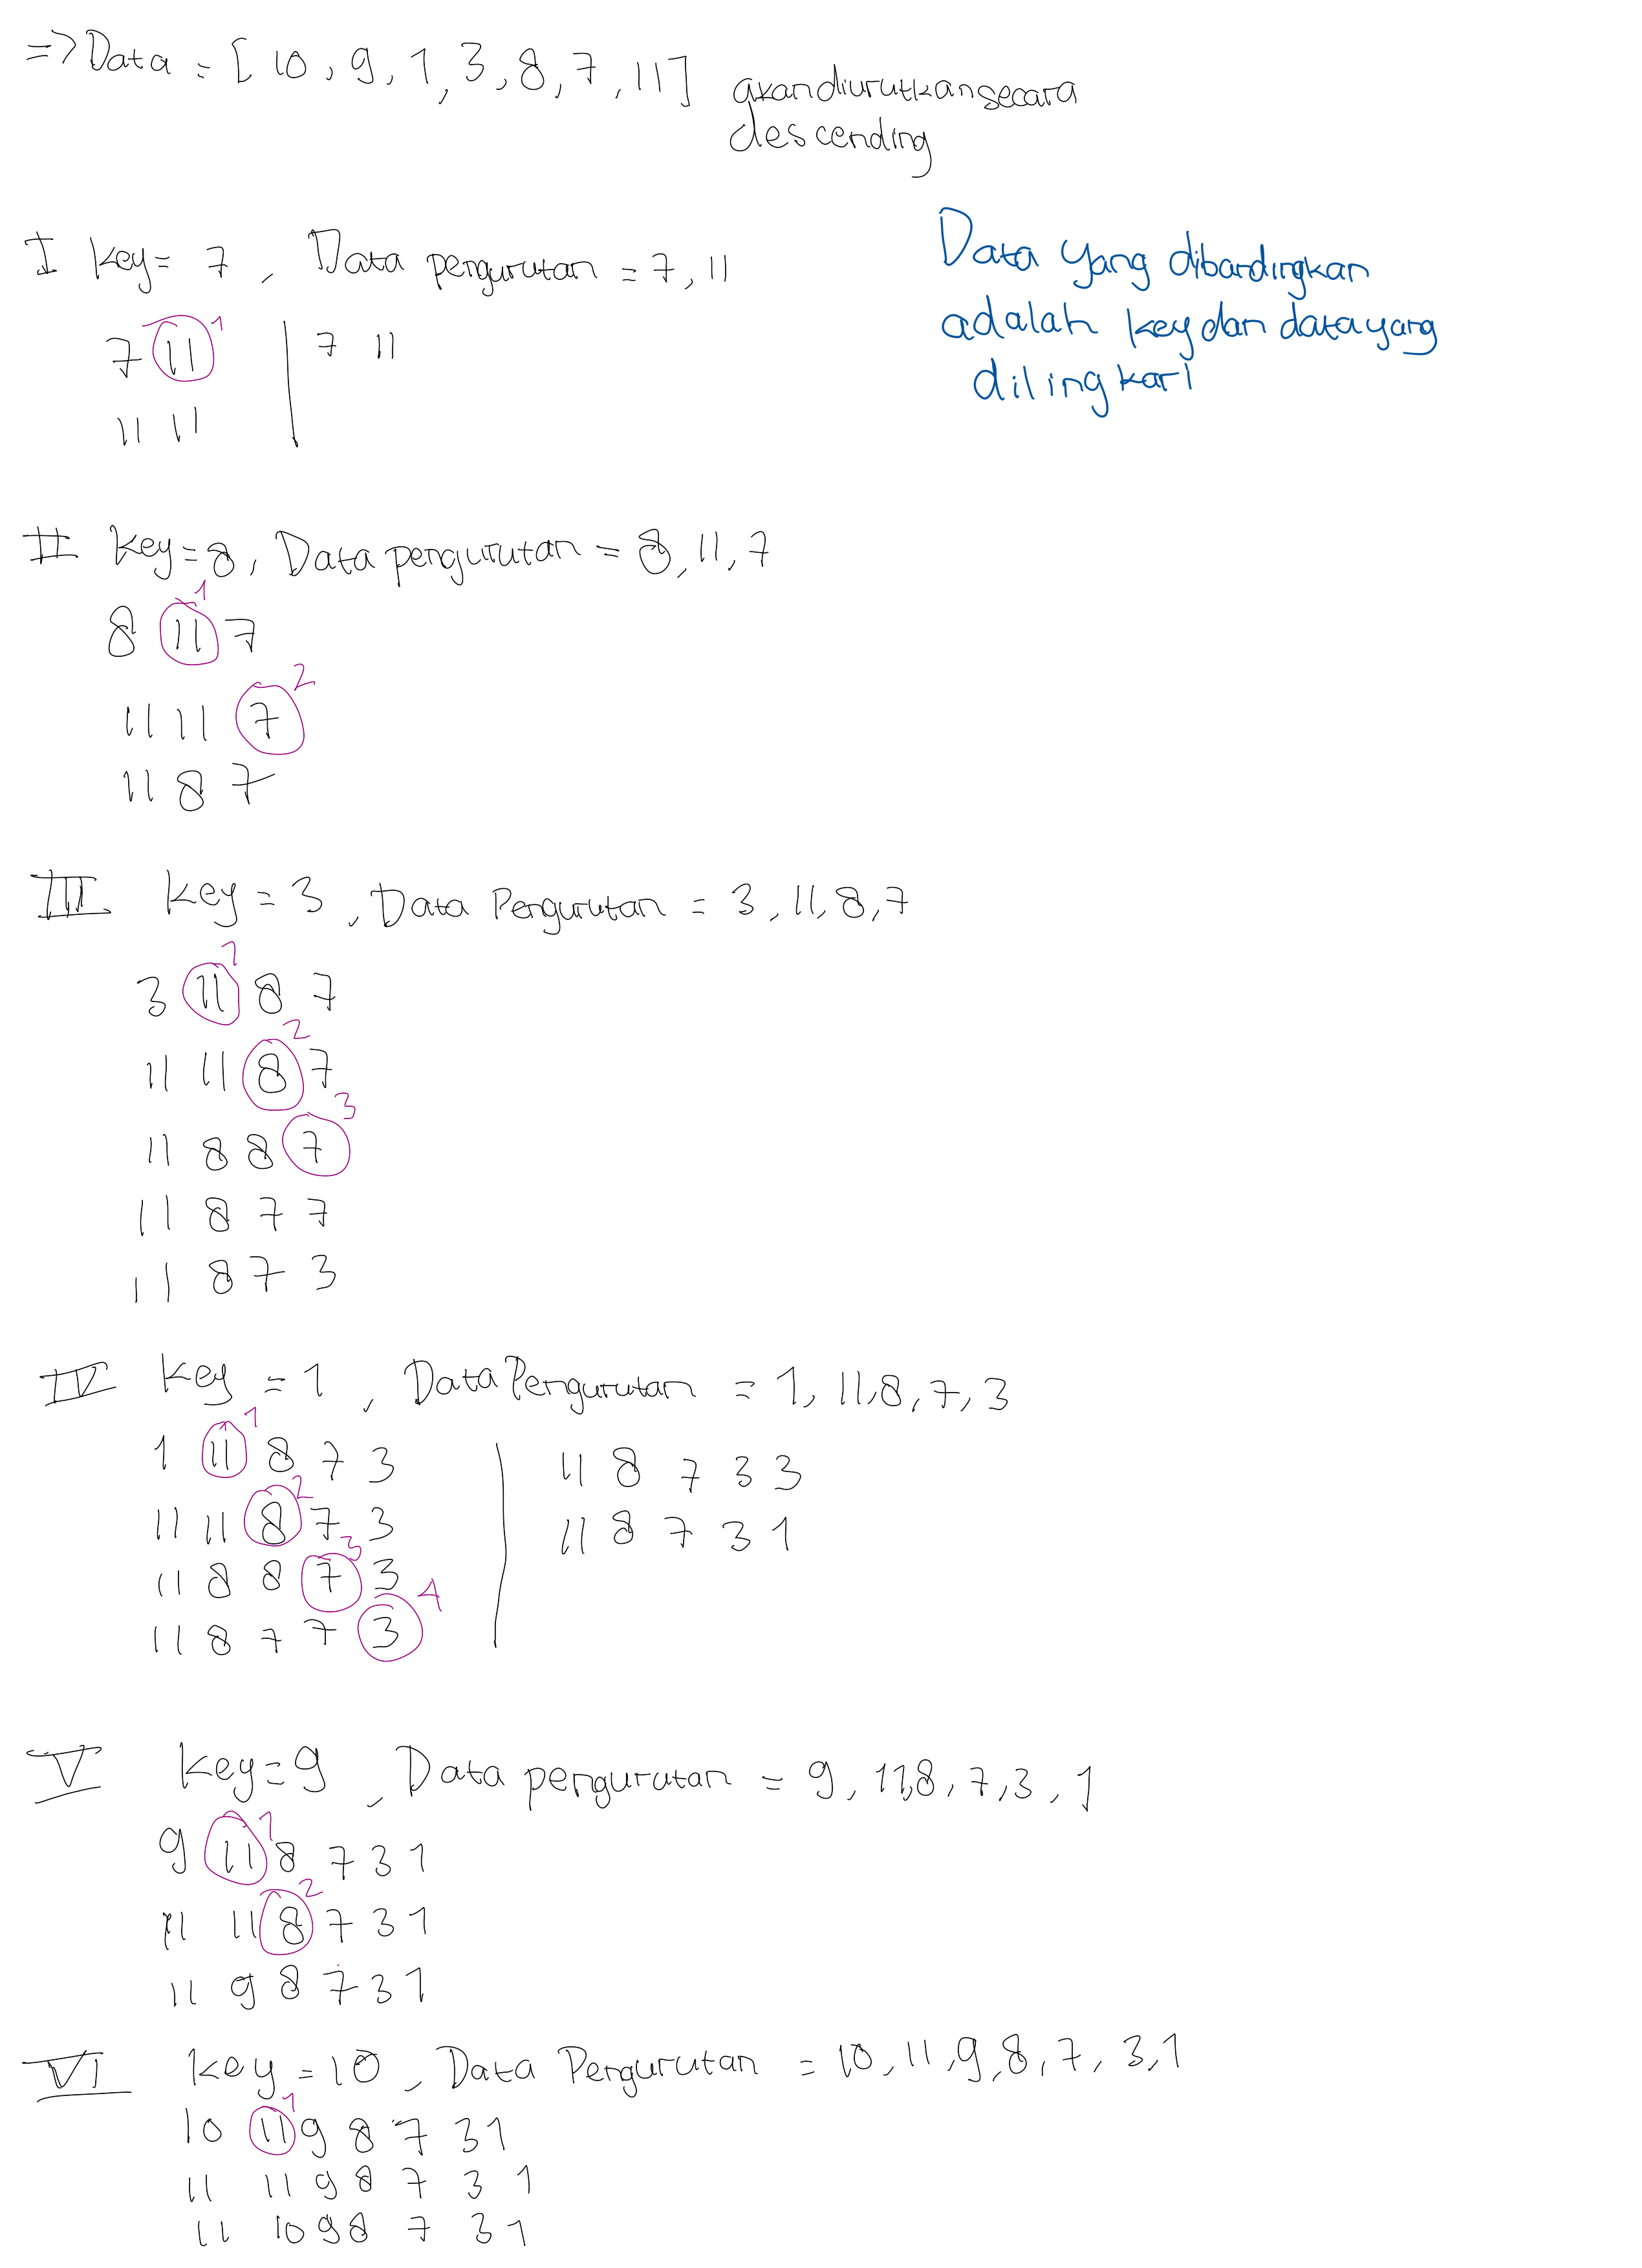 => Data = [ 10, 9, 1, 3, 8, 7, 11] akan diurutkan secara
descending
Data yang dibandingkan
adalah key dan data yang
dilingkari
I key= 7, Data pengurutan = 7, 11
7 11 1 | 7 11
11 11
II Key=8, Data pengurutan = 8, 11, 7
8 11 1 7
11 11 7 2
11 8 7
III Key = 3, Data Pengurutan = 3, 11, 8, 7
3 11 1 8 7
11 11 8 2 7
11 8 8 7 3
11 8 7 7
11 8 7 3
IV Key = 1, Data Pengurutan = 1, 11, 8, 7, 3
1 11 1 8 7 3 | 11 8 7 3 3
11 11 8 2 7 3 | 11 8 7 3 1
11 8 8 7 3 3
11 8 7 7 3 4
V Key=9, Data pengurutan = 9, 11, 8, 7, 3, 1
9 11 1 8 7 3 1
11 11 8 2 7 3 1
11 9 8 7 3 1
VI Key = 10, Data Pengurutan = 10, 11, 9, 8, 7, 3, 1
10 11 1 9 8 7 3 1
11 11 9 8 7 3 1
11 10 9 8 7 3 1